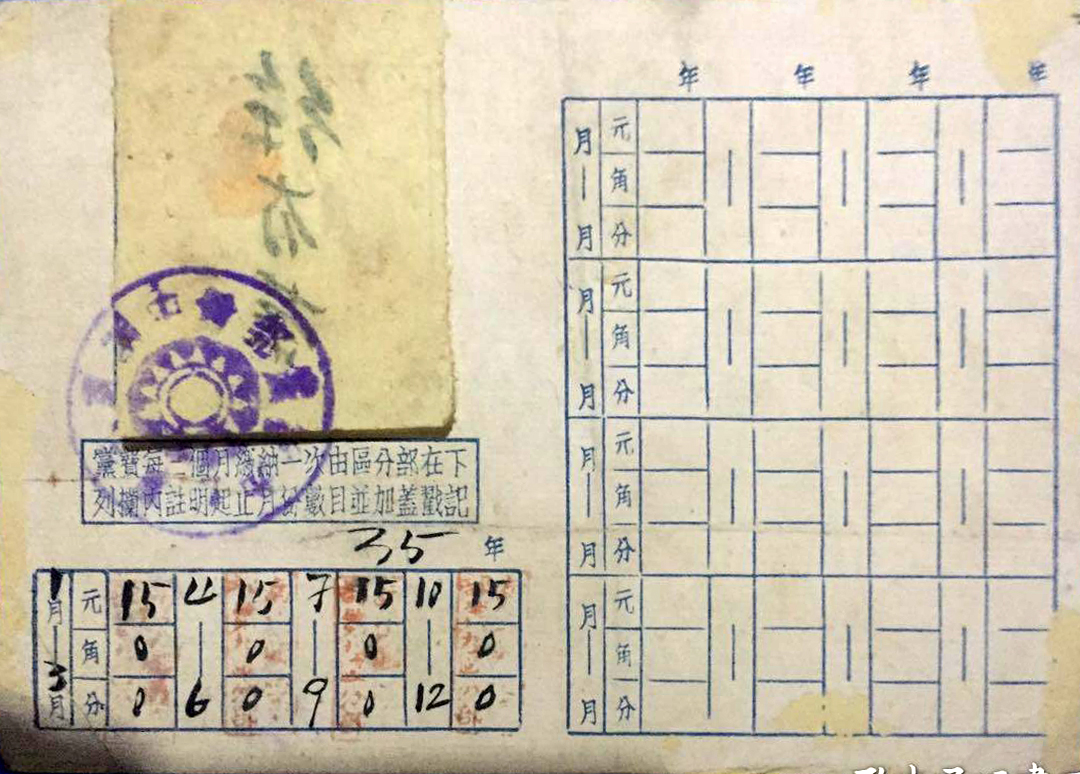 黨費每三個月繳納一次由區分部在下
列欄內註明起止月份數目並加蓋戳記
35 年
1月—3月 元 15 4 15 7 15 10 15
角 0 — 0 — 0 — 0
分 0 6 0 9 0 12 0
年 年 年 年
月—月 元
角
分
月—月 元
角
分
月—月 元
角
分
月—月 元
角
分